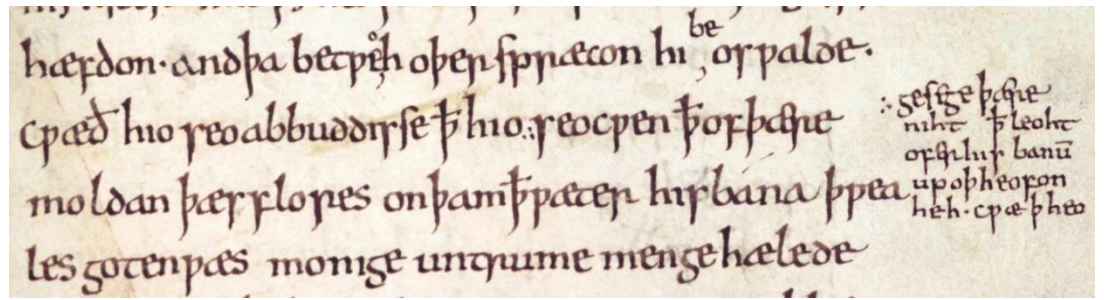 hæfdon· and þa betƿeoh oþer spræcon hi be osƿalde.
cƿæð hio seo abbuddisse ꝥ hio ∴ seo cƿen ꝥ of þære
moldan þæs flores on þam ꝥ ƿæter his bana þƿea
les goten ƿæs monige untrume men gehælede
∴ gesege þære
niht ꝥ leoht
ofer his banū
up oþ heofon
heh· cƿæþ heo